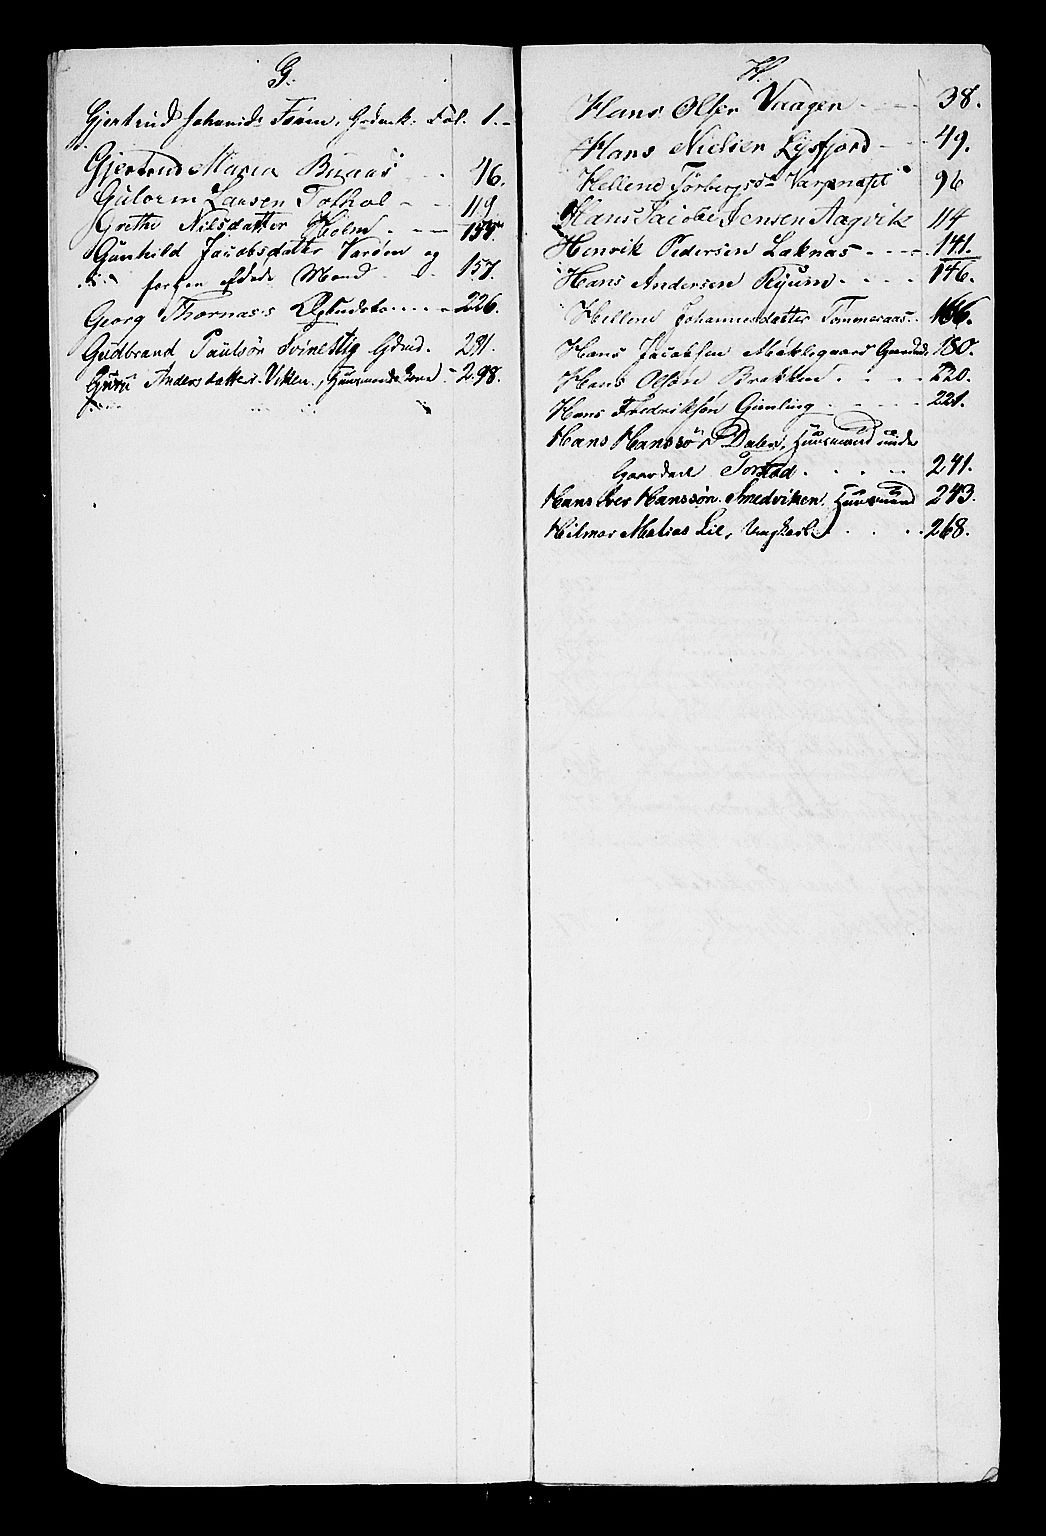 G.
Gjertrud Johannisd: Foul. 1.
Gjertrud Maria Buaas 46.
Gutorm Larsen Tolhol 119
Grethe Nilsdatter Holm 154.
Gunhild Jacobsdatter Varøen og
Mand 157.
Georg Thomas's 226.
Gudbrand Paulsøn Svinestig Gdmd. 281.
Guru Andersdatter Viken, Huusmandskone 298.
H.
Hans Olsen Vaagen 38.
Hans Nielsen Lysfjord 49.
Hellene Torbergs 96
Hans Jacob Jensen Aagvik 114
Henrik Pedersen Laknas 141.
Hans Andersen Ryum 146.
Hellene Johannesdatter Tommeraas
Hans Jacobsen 180.
Hans Olsøn Brakken 220.
Hans Fredriksøn Gimling 221.
Hans Hanssøn Dalen, Huusmand under
Gaarden Torstad 241.
Hans Iver Hanssøn Smedviken, Huusmand 243.
Hilmar Matias Lie, Ungkarl 268.